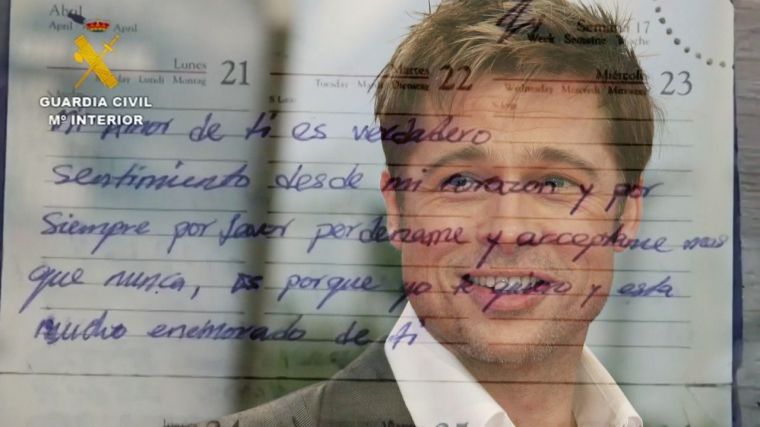 Abril
April April
Semana 17
Week Semaine Woche
Lunes
Lundi Montag
21
Martes
Tuesday Mardi Dienstag
22
Miércoles
Wednesday Mercredi Mittwoch
23
GUARDIA CIVIL
Mº INTERIOR
Mi amor de ti es verdadero
Sentimiento desde mi corazon y por
Siempre por favor perdename y acceptame mas
que nunca, es porque yo te quiero y esta
mucho enemorado de ti
24
25